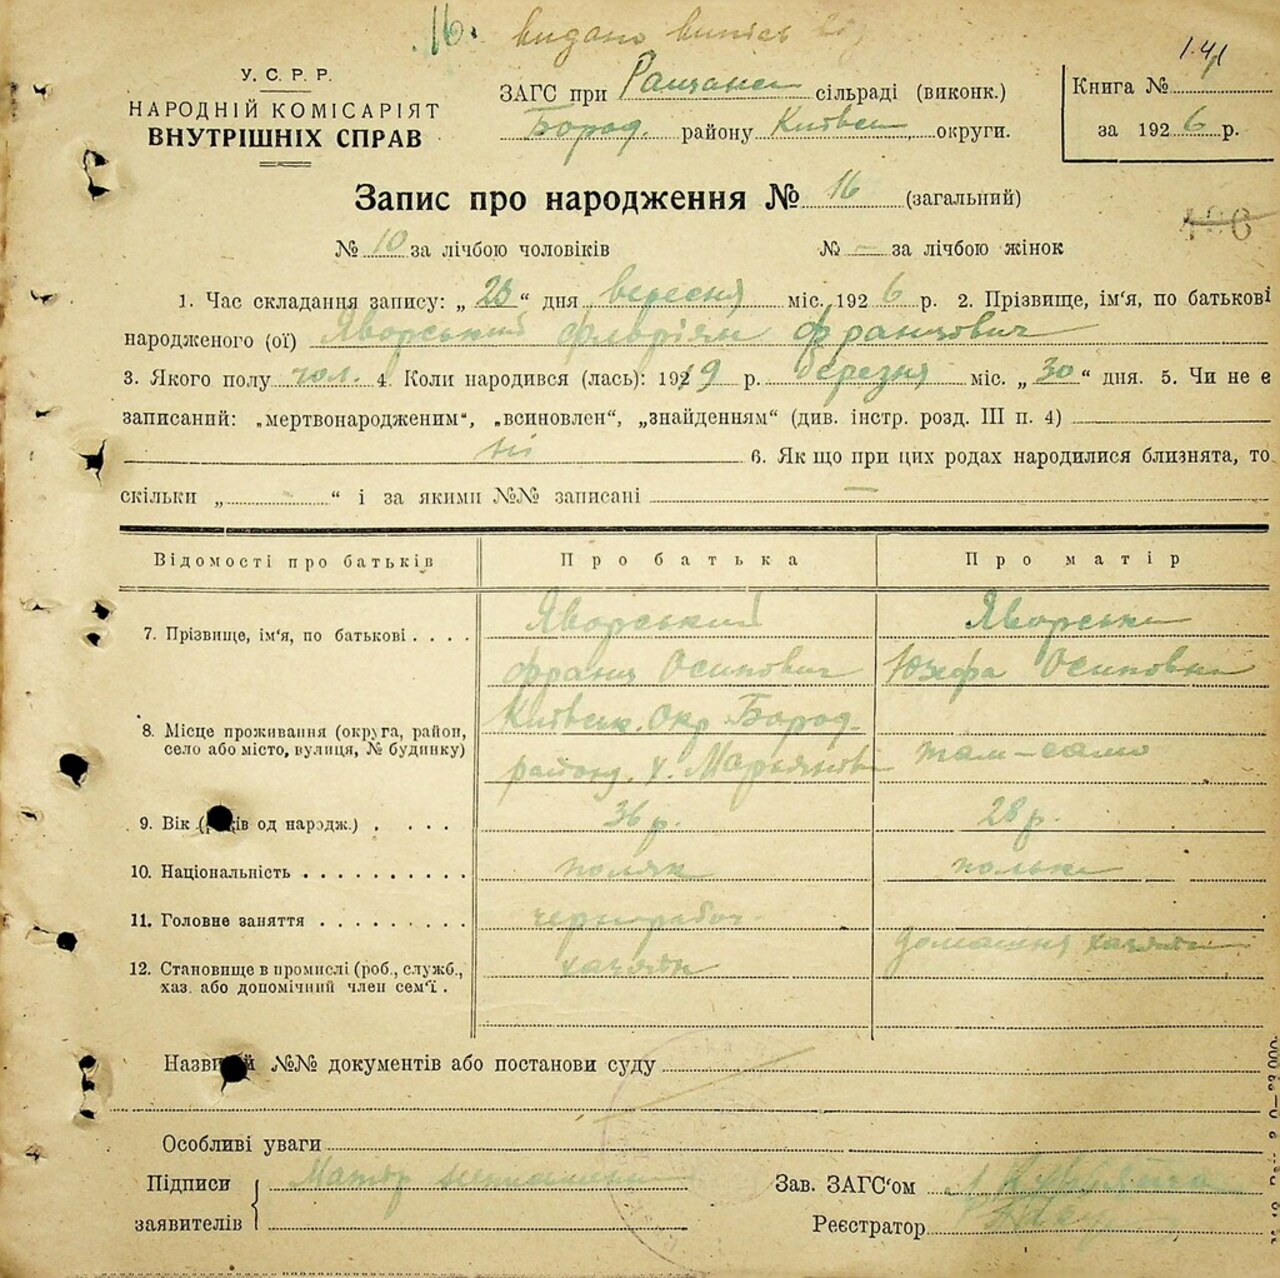 16. видано випись
1.41
У. С. Р. Р.
НАРОДНІЙ КОМІСАРІЯТ
ВНУТРІШНІХ СПРАВ
ЗАГС при сільраді (виконк.)
Бород. району Київськ округи.
Книга №
за 1926 р.
Запис про народження № 16 (загальний)
№ 10 за лічбою чоловіків № — за лічбою жінок
1. Час складання запису: „ 28 “ дня вересня міс. 1926 р. 2. Прізвище, ім'я, по батькові
народженого (ої) Яворський Флоріян Францович
3. Якого полу чол. 4. Коли народився (лась): 1919 р. березня міс. „ 30 “ дня. 5. Чи не є
записаний: „мертвонародженим“, „всиновлен“, „знайденням“ (див. інстр. розд. III п. 4)
ні 6. Як що при цих родах народилися близнята, то
скільки „ - “ і за якими №№ записані —
Відомості про батьків Про батька Про матір
7. Прізвище, ім'я, по батькові . . . . Яворський Яворська
Франц Осипович Юзефа Осиповна
8. Місце проживання (округа, район, село або місто, вулиця, № будинку) Київськ. Окр Бород.
району, х. Мар'янівка там-само
9. Вік (років од народж.) . . . . 36 р. 28 р.
10. Національність . . . . . . . . . . поляк полька
11. Головне заняття . . . . . . . . . чернороб
12. Становище в промислі (роб., служб., хазяїн домашня хазяйка
хаз. або допомічний член сем'ї .
Назви й №№ документів або постанови суду
Особливі уваги
Підписи Мати Зав. ЗАГС'ом
заявителів Реєстратор